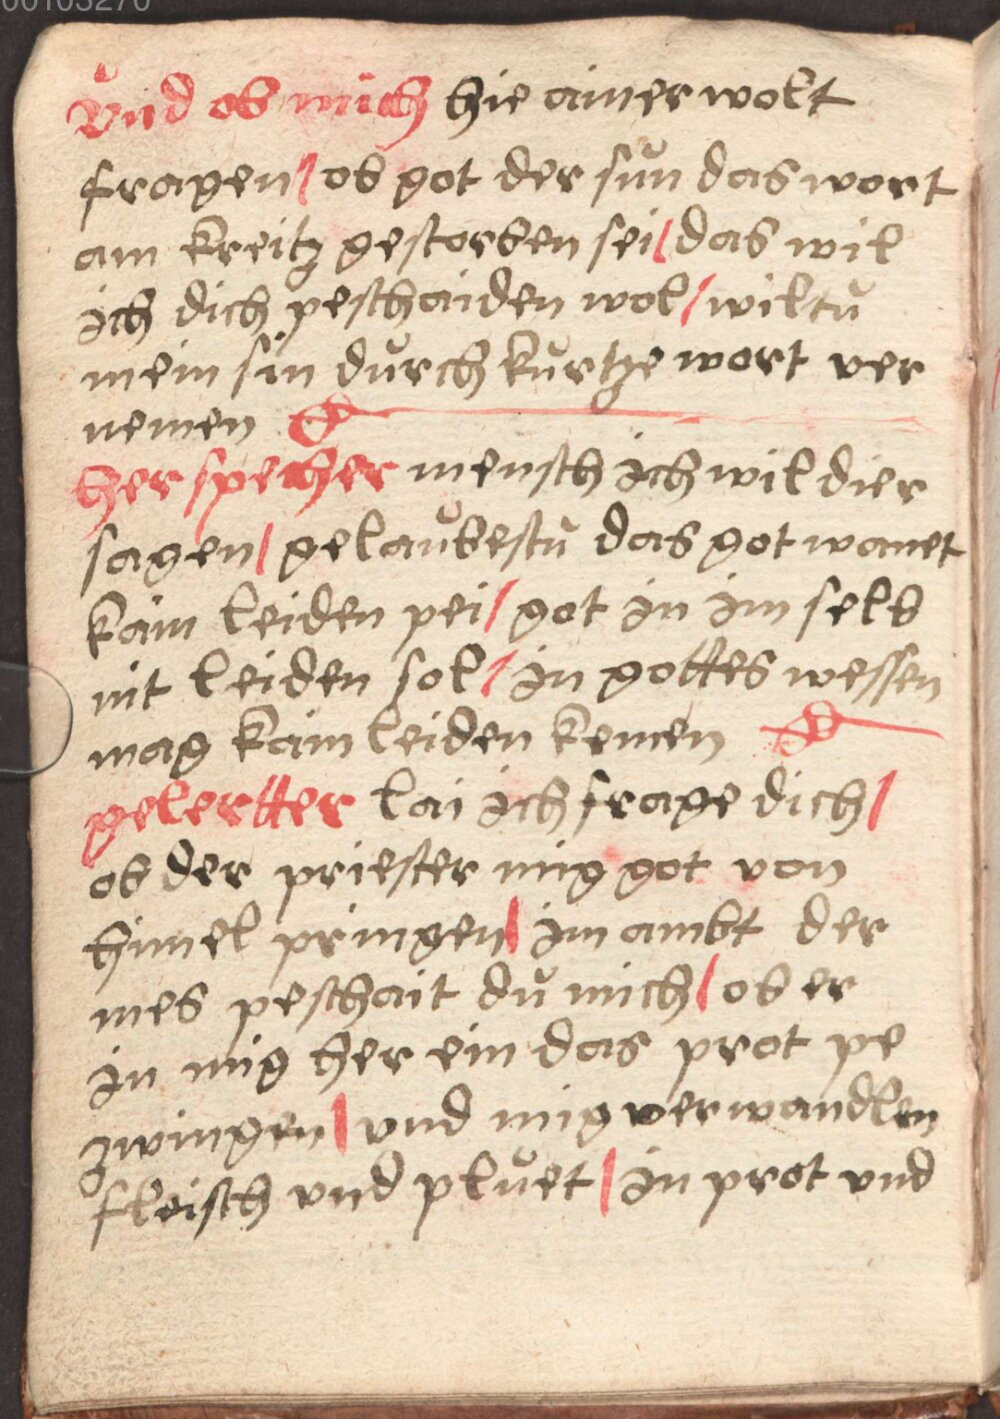 00103270
Vnd ob mich hie ainer wolt
fragen / ob got der sŭn das wort
am kreitz gestorben sei / das wil
ich dich peschaiden wol / wiltŭ
mein sin dŭrch kŭrtze wort ver
nemen
her specher mensch ich wil dier
sagen / gelaŭbestŭ das got wanet
kain leiden pei / got in im selb
nit leiden sol / in gottes wessen
mag kain leiden kemen
gelertter lai ich frage dich /
ob der priester mig got von
himel pringen / im ambt der
mes peschait dŭ mich / ob er
in mig her ein das prot pe
zwingen / vnd mig verwandlen
fleisch vnd plŭet / in prot vnd